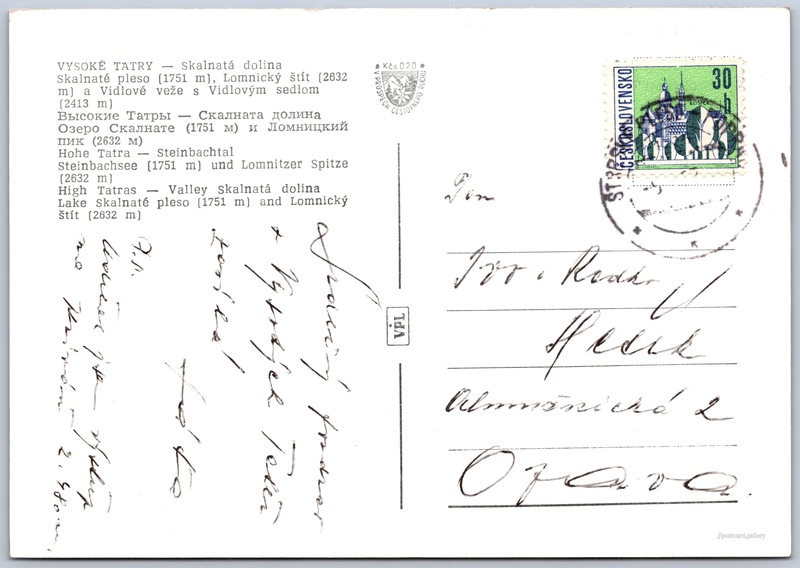 VYSOKÉ TATRY — Skalnatá dolina
Skalnaté pleso (1751 m), Lomnický štít (2632
m) a Vidlové veže s Vidlovým sedlom
(2413 m)
Высокие Татры — Скалната долина
Озеро Скалнате (1751 м) и Ломницкий
пик (2632 м)
Hohe Tatra — Steinbachtal
Steinbachsee (1751 m) und Lomnitzer Spitze
(2632 m)
High Tatras — Valley Skalnatá dolina
Lake Skalnaté pleso (1751 m) and Lomnický
štít (2632 m)
Kčs 0,20
V PROSPECH CESTOVNÉHO RUCHU
ČESKOSLOVENSKO
30 h
VPL
Srdečný pozdrav
z Vysokých Tater
P.S.
Ivo a Radka
Almužnická 2
Opava.
postcard.gallery